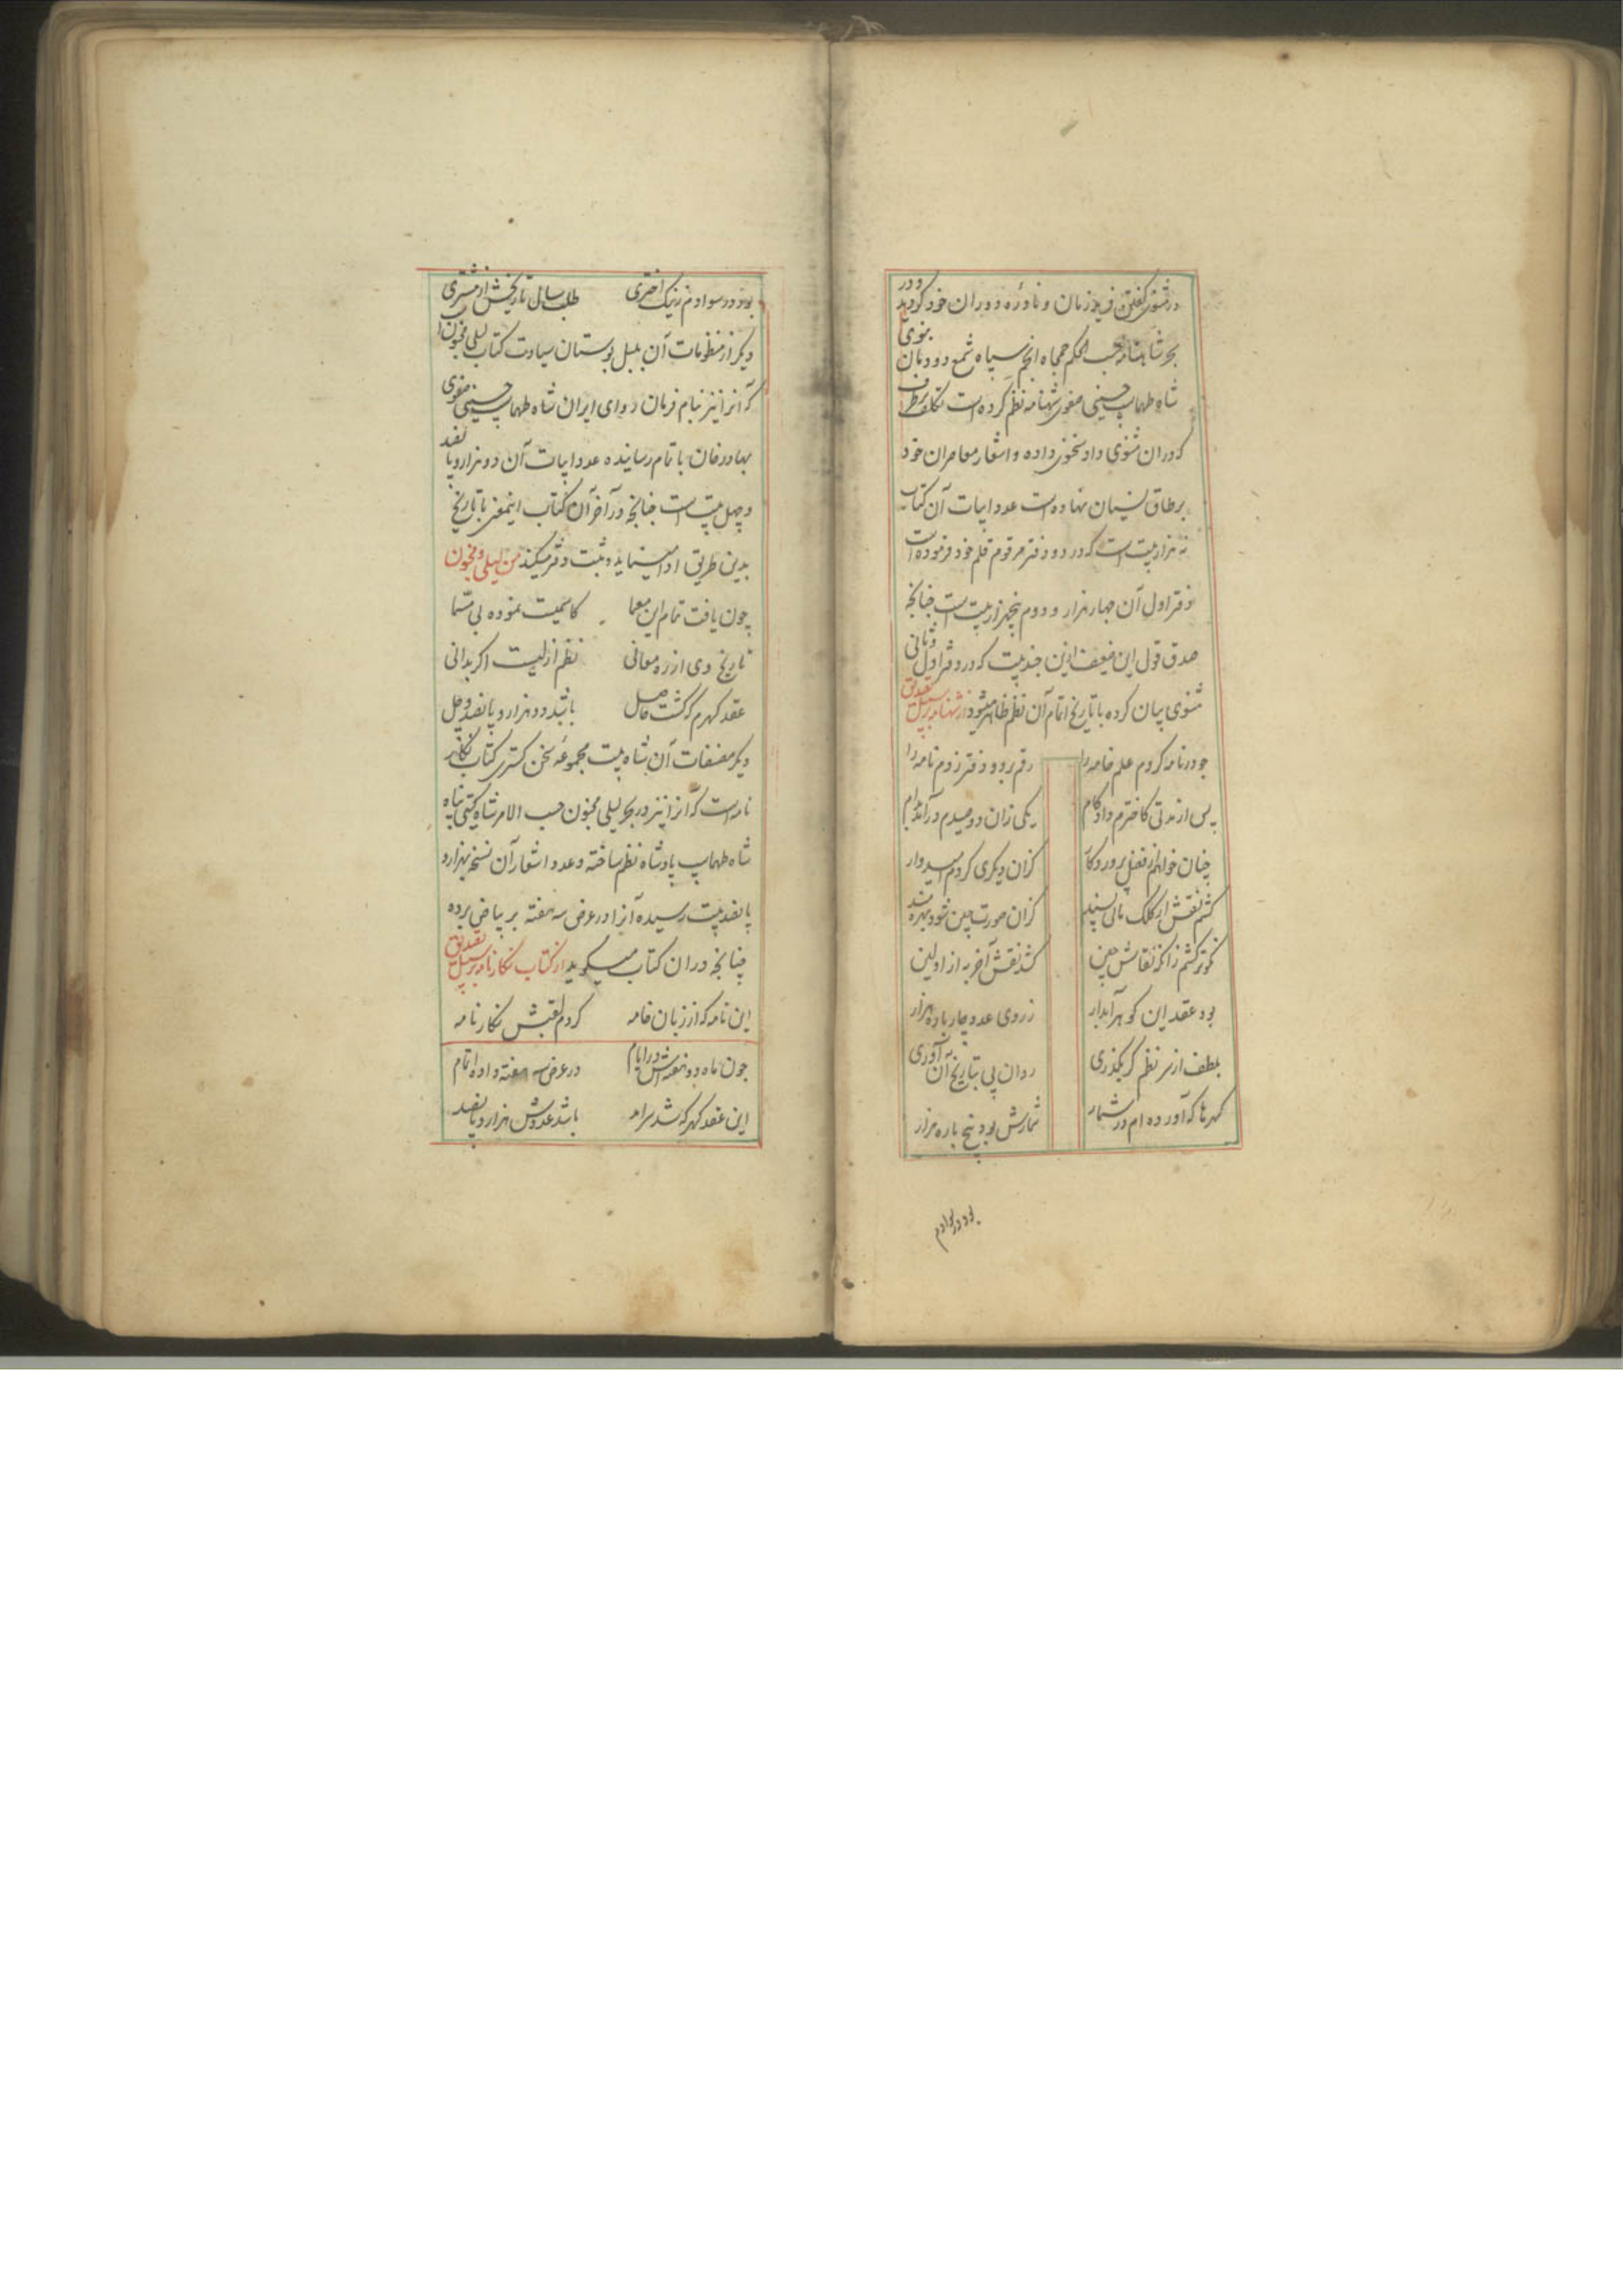 در مثنوی گفتن فرید زمان و نادره دوران خود کردید و در
بحر شاهنامه حسب الحکم جمجاه انجم سپاه شمع دودمان نبوی
شاه طهماسب حسینی صفوی شهنامه نظم کرده است تکلف برطرف
که دران مثنوی داد سخنوری داده و اشعار معاصران خود
برطاق نسیان نهاده است عدد ابیات آن کتاب
نه هزار بیت است که در دو دفتر مرقوم قلم خود فرموده است
دفتر اول آن چهار هزار و دوم پنجهزار بیت است چنانچه
صدق قول این ضعیف ازین چند بیت که در دفتر اول و ثانی
مثنوی بیان کرده با تاریخ اتمام آن نظم ظاهر میشود از شهنامه بر سبیل تصدیق
چو در نامه کردم علم خامه را رقم بر دو دفتر زدم نامه را
پس از مدتی کاخترم داد کام یکی زان دو صیدم درآمد بدام
چنان خواهم از فضل پروردگار کزان دیگری کردم امیدوار
کشم نقش از کلک مانی پسند کزان صورت چین شود بهره مند
نکوتر کشم زانکه نقاش چین کشد نقش آخر به از اولین
بود عقد این گوهر آبدار ز روی عدد چار باره هزار
بلطف از سر نظم گر بگذری روان پی بتاریخ آن آوری
گهرها که آورده ام در شمار شمارش بود پنج باره هزار
بود در سوادم
بود در سوادم ز نیک اختری طلب سال تاریخش از مشتری
دیگر از منظومات آن بلبل بوستان سیادت کتاب لیلی مجنون
که آنرا نیز بنام فرمان روای ایران شاه طهماسب حسینی صفوی
بهادرخان باتمام رسانیده عدد ابیات آن دو هزار و پانصد
و چهل بیت است چنانچه در آخر آن کتاب اینمعنی با تاریخ
بدین طریق ادا مینماید و ثبت دفتر میکند من لیلی و مجنون
چون یافت تمام این معما کاسمیت نموده بی مسما
تاریخ وی از ره معانی نظم ازلیست اگر بدانی
عقد گهرم که گشت حاصل باشد دو هزار و پانصد و چل
دیگر مصنفات آن شاه بیت مجموعه سخن گستری کتاب نگار
نامه است که آنرا نیز در بحر لیلی مجنون حسب الامر شاه گیتی پناه
شاه طهماسب پادشاه نظم ساخته و عدد اشعار آن نسخه بهزار و
پانصد بیت رسیده آنرا در عرض سه هفته بر بیاض برده
چنانچه دران کتاب میگوید از کتاب نگارنامه بر سبیل تصدیق
این نامه که از زبان خامه کردم لقبش نگارنامه
چون ماه دو هفته اش در ایام در عرض سه هفته داده اتمام
این عقد گهر که شد سرامد باشد عددش هزار و پانصد